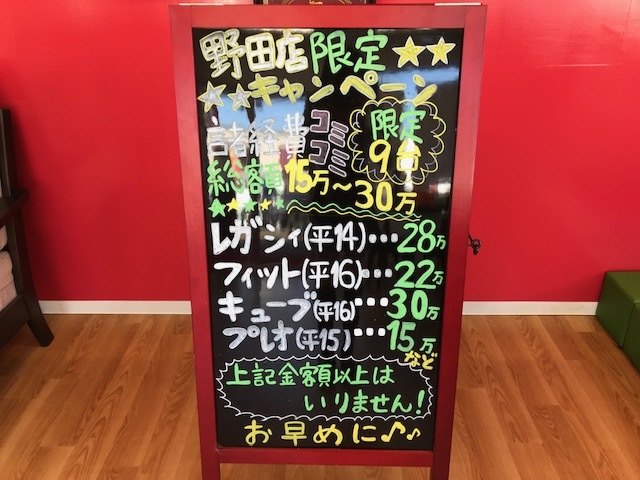 野田店限定★★
★★キャンペーン
諸経費コミコミ
限定
9台
総額15万〜30万
★★★★★
レガシィ(平14)…28万
フィット(平16)…22万
キューブ(平16)…30万
プレオ(平15)…15万
など
上記金額以上は
いりません!
お早めに♪♪